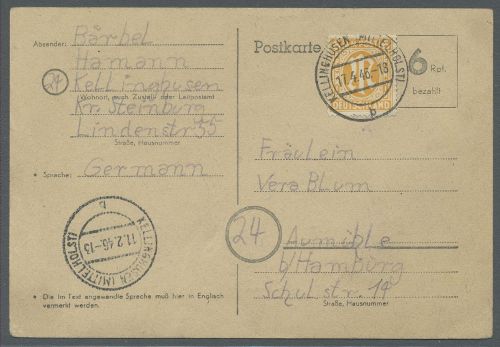 Absender: Bärbel
Hamann
24 Kellinghusen
Wohnort, auch Zustell- oder Leitpostamt
Kr. Steinburg
Lindenstr 35
Straße, Hausnummer
• Sprache: Germann
KELLINGHUSEN (MITTELHOLST)
11.2.46-13
b
• Die im Text angewandte Sprache muß hier in Englisch
vermerkt werden.
Postkarte
6 Rpf.
bezahlt
KELLINGHUSEN (MITTELHOLST)
17.4.46-13
b
DEUTSCHLAND
Fräulein
Vera Blum
24. Aumühle
b/Hamburg
Schulstr. 14
Straße, Hausnummer